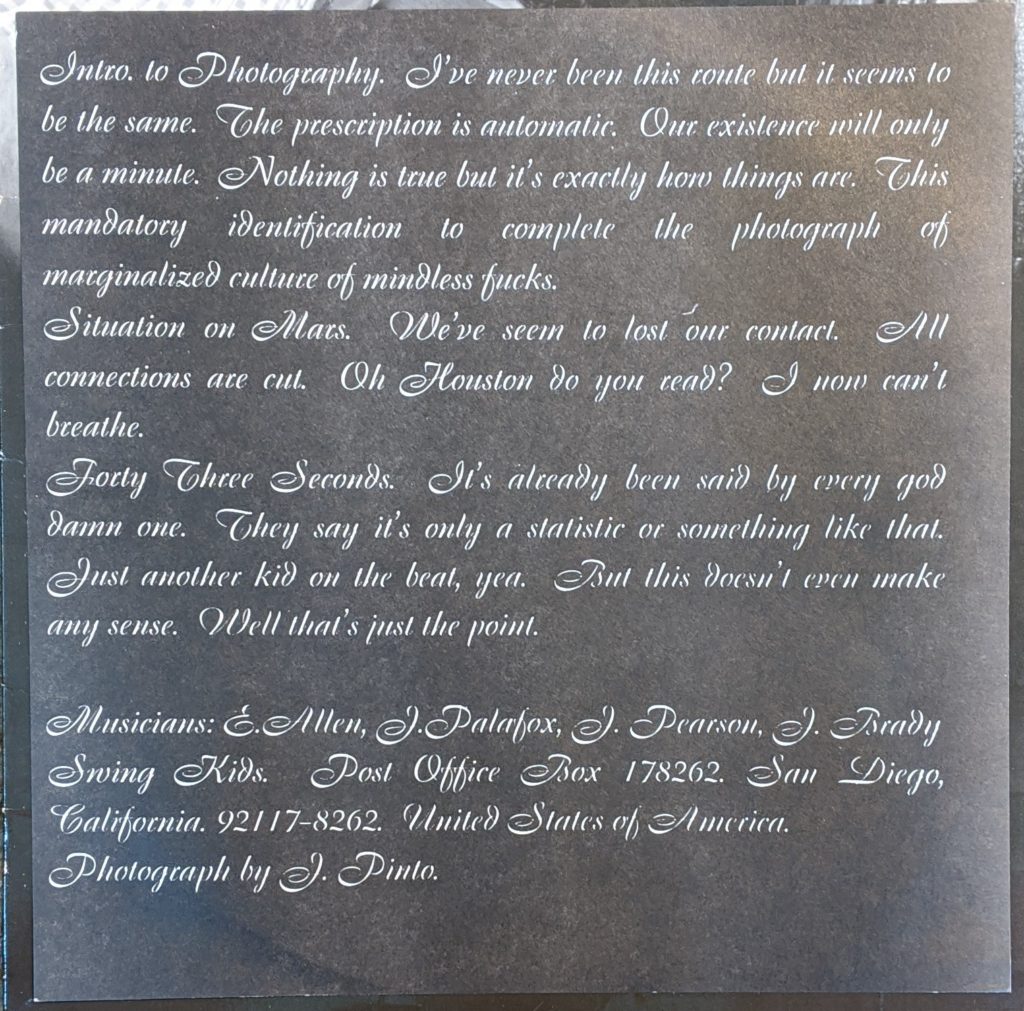 Intro. to Photography. I've never been this route but it seems to
be the same. The prescription is automatic. Our existence will only
be a minute. Nothing is true but it's exactly how things are. This
mandatory identification to complete the photograph of
marginalized culture of mindless fucks.
Situation on Mars. We've seem to lost our contact. All
connections are cut. Oh Houston do you read? I now can't
breathe.
Forty Three Seconds. It's already been said by every god
damn one. They say it's only a statistic or something like that.
Just another kid on the beat, yea. But this doesn't even make
any sense. Well that's just the point.
Musicians: E.Allen, J.Palafox, J. Pearson, J. Brady
Swing Kids. Post Office Box 178262. San Diego,
California. 92117-8262. United States of America.
Photograph by J. Pinto.